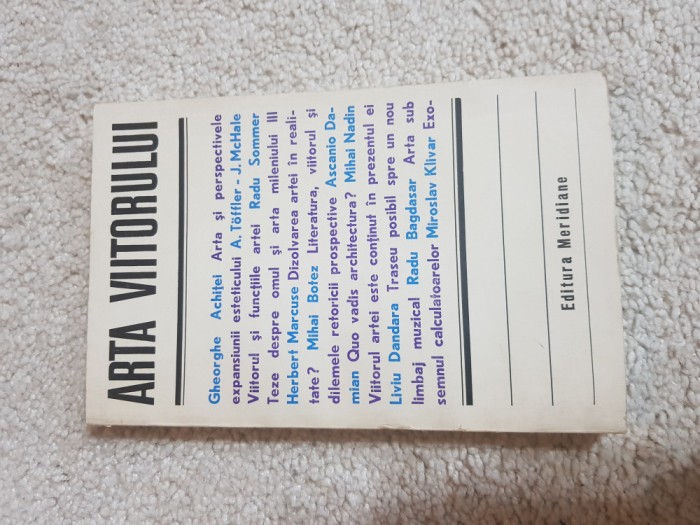 ARTA VIITORULUI
Gheorghe Achiței Arta și perspectivele
expansiunii esteticului A. Töffler - J. McHale
Viitorul și funcțiile artei Radu Sommer
Teze despre omul și arta mileniului III
Herbert Marcuse Dizolvarea artei în reali-
tate? Mihai Botez Literatura, viitorul și
dilemele retoricii prospective Ascanio Da-
mian Quo vadis architectura? Mihai Nadin
Viitorul artei este conținut în prezentul ei
Liviu Dandara Traseu posibil spre un nou
limbaj muzical Radu Bagdasar Arta sub
semnul calculatoarelor Miroslav Klivar Exo-
Editura Meridiane